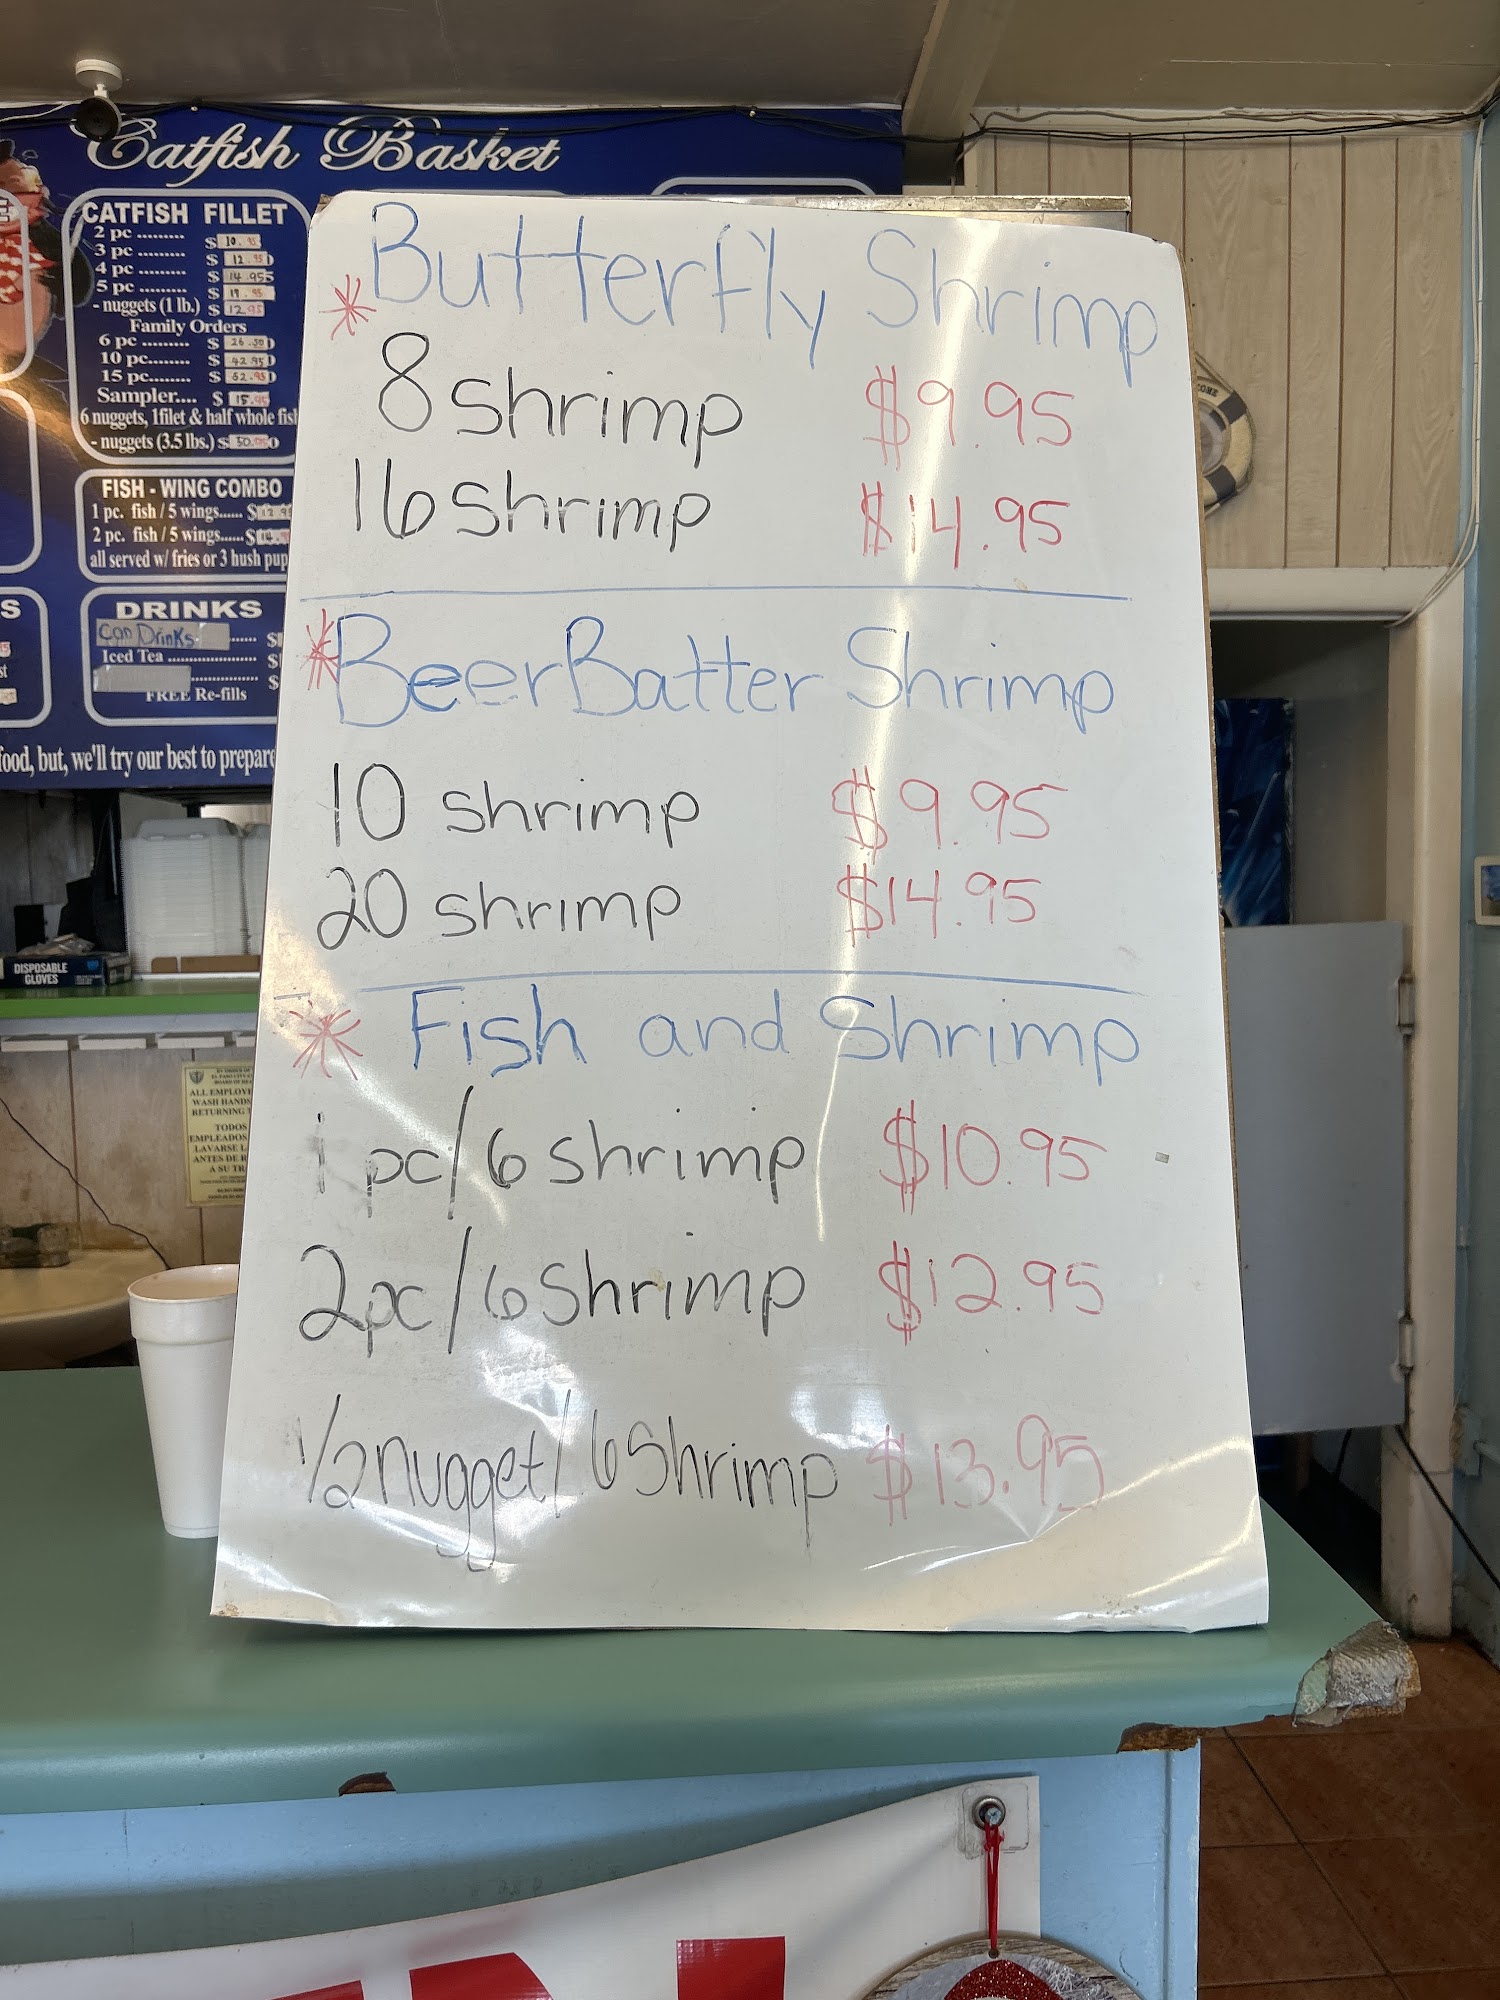 Catfish Basket
CATFISH FILLET
2 pc ......... $ 10.95
3 pc ......... $ 12.95
4 pc ......... $ 14.95
5 pc ......... $
- nuggets (1 lb.) $ 12.95
Family Orders
6 pc ......... $ 26.50
10 pc........ $ 42.95
15 pc....... $ 52.95
Sampler.... $ 15.95
6 nuggets, 1filet & half whole fish
- nuggets (3.5 lbs.) $
FISH - WING COMBO
1 pc. fish / 5 wings...... $
2 pc. fish / 5 wings...... $
all served w/ fries or 3 hush pup
DRINKS
Can Drinks ...... $
Iced Tea ..................... $
................ $
FREE Re-fills
food, but, we'll try our best to prepare
* Butterfly Shrimp
8 shrimp $9.95
16 shrimp $14.95
* Beer Batter Shrimp
10 shrimp $9.95
20 shrimp $14.95
* Fish and Shrimp
1 pc/6 shrimp $10.95
2pc/6 Shrimp $12.95
1/2 nugget/6 Shrimp $13.95
DISPOSABLE
GLOVES
ALL EMPLOYE
WASH HANDS
RETURNING T
TODOS
EMPLEADOS
LAVARSE L
ANTES DE R
A SU TR